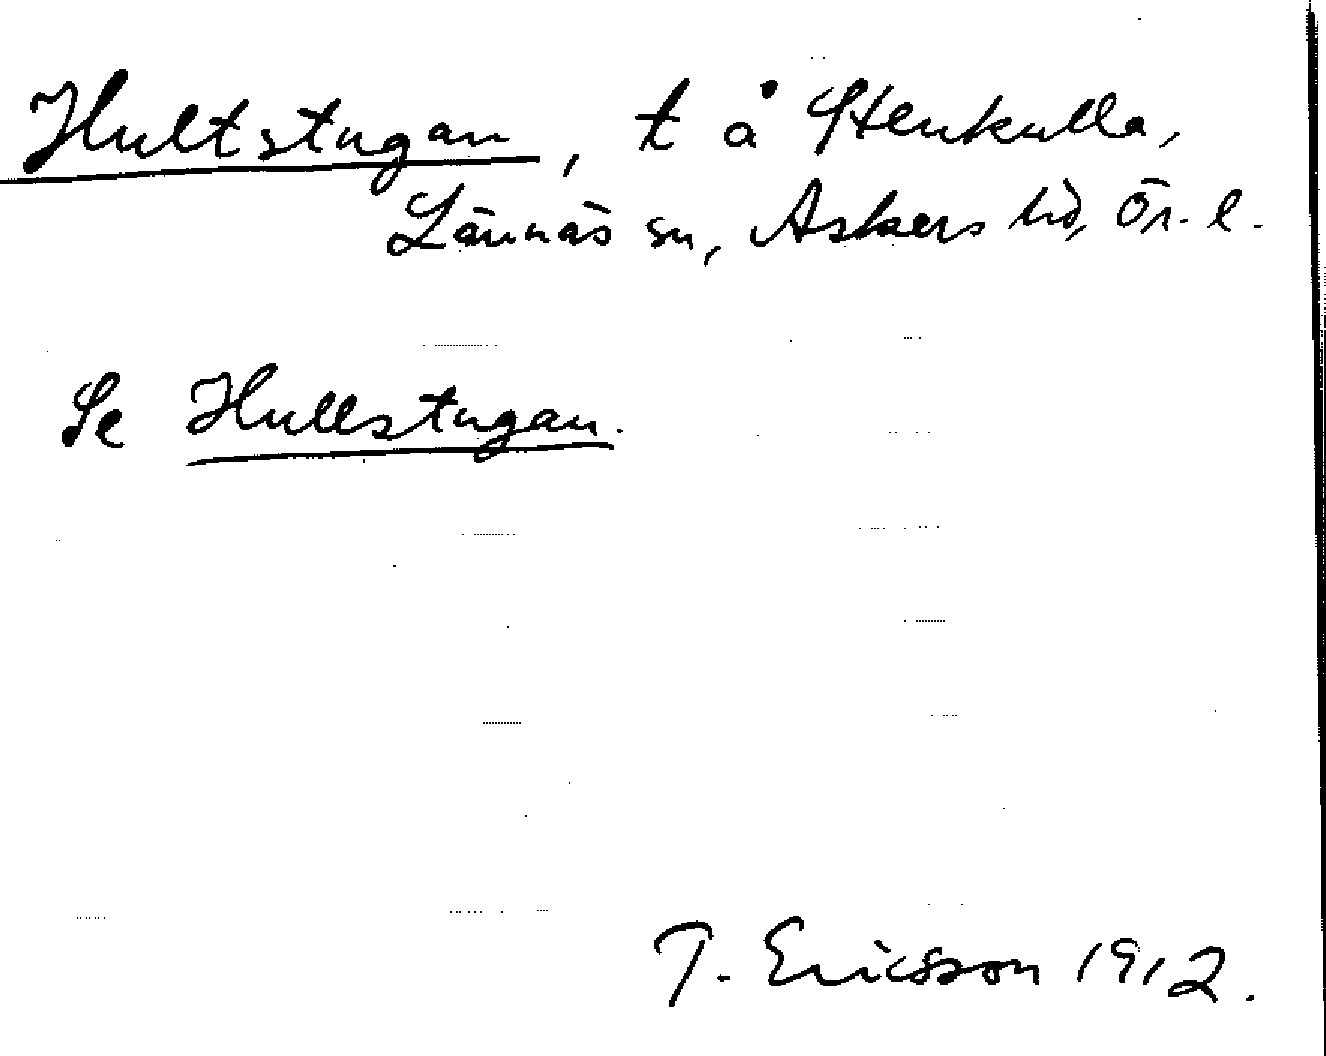 Hultstugan, t å Stenkulla,
Lännäs sn, Askers hd, Ör. l.
Se Hullstugan.
T. Ericsson 1912.